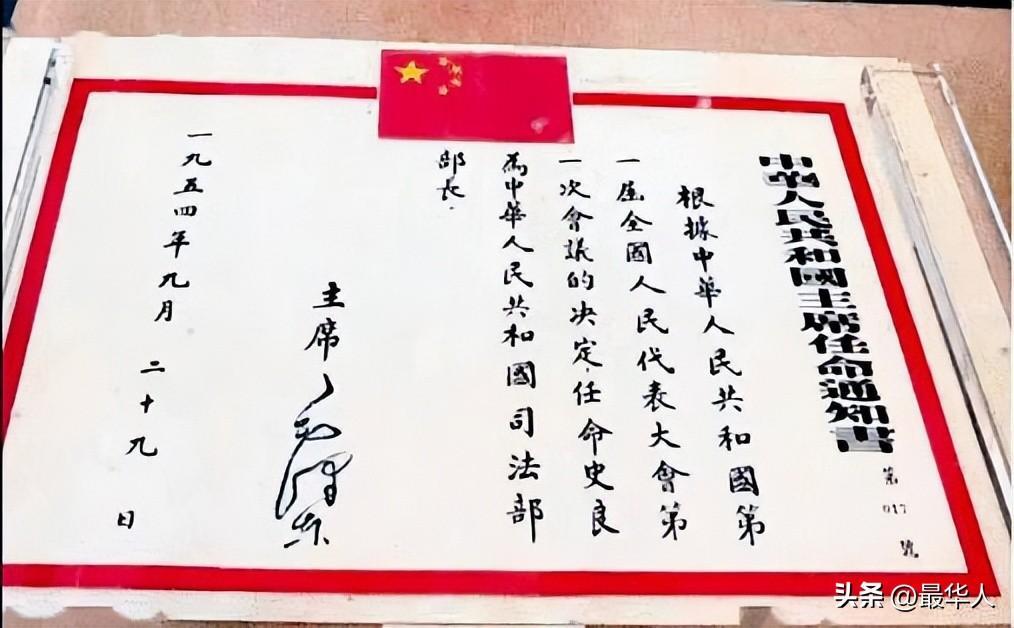 中華人民共和國主席任命通知書
第 017 號
根據中華人民共和國第
一屆全國人民代表大會第
一次會議的决定,任命史良
為中華人民共和國司法部
部長.
主席 毛澤东
一九五四年九月二十九日
头条 @最华人